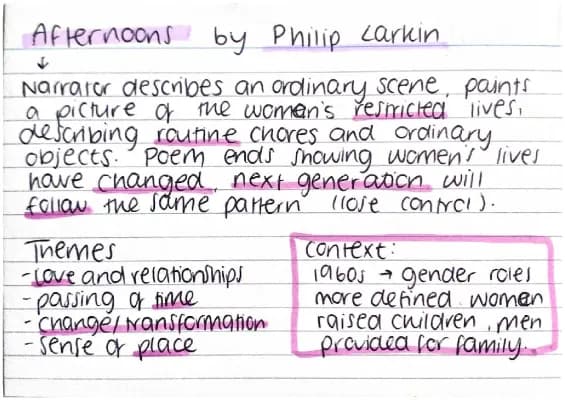 Afternoons by Philip Larkin
↓
Narrator describes an ordinary scene, paints
a picture of the women's restricted lives,
describing routine chores and ordinary
objects. Poem ends showing women's lives
have changed, next generation will
follow the same pattern (lose control).
Themes
- Love and relationships
- passing of time
- change/transformation
- Sense of place
Context:
1960s → gender roles
more defined. women
raised children, men
provided for family.